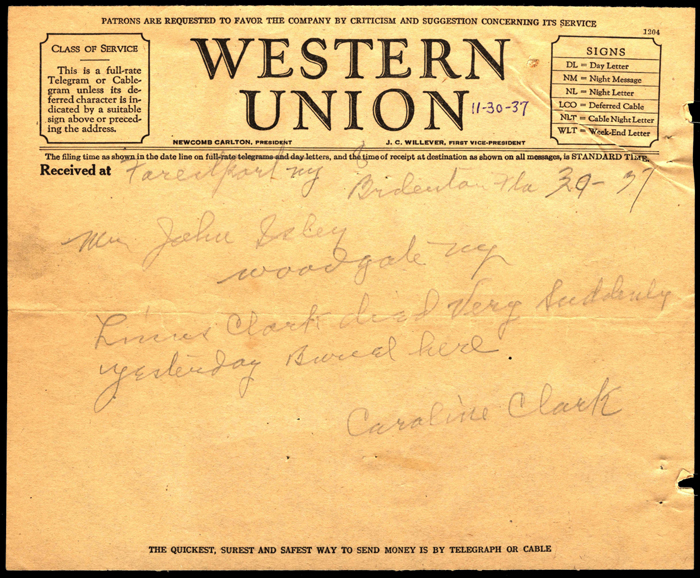 PATRONS ARE REQUESTED TO FAVOR THE COMPANY BY CRITICISM AND SUGGESTION CONCERNING ITS SERVICE
1204
CLASS OF SERVICE
This is a full-rate
Telegram or Cable-
gram unless its de-
ferred character is in-
dicated by a suitable
sign above or preced-
ing the address.
WESTERN
UNION
11-30-37
SIGNS
DL = Day Letter
NM = Night Message
NL = Night Letter
LCO = Deferred Cable
NLT = Cable Night Letter
WLT = Week-End Letter
NEWCOMB CARLTON, PRESIDENT
J. C. WILLEVER, FIRST VICE-PRESIDENT
The filing time as shown in the date line on full-rate telegrams and day letters, and the time of receipt at destination as shown on all messages, is STANDARD TIME.
Received at Forestport ny Brdenton Fla 29-37
John Isley
woodgate ny
Clark died Very Suddenly
yesterday Buried here
Caroline Clark
THE QUICKEST, SUREST AND SAFEST WAY TO SEND MONEY IS BY TELEGRAPH OR CABLE